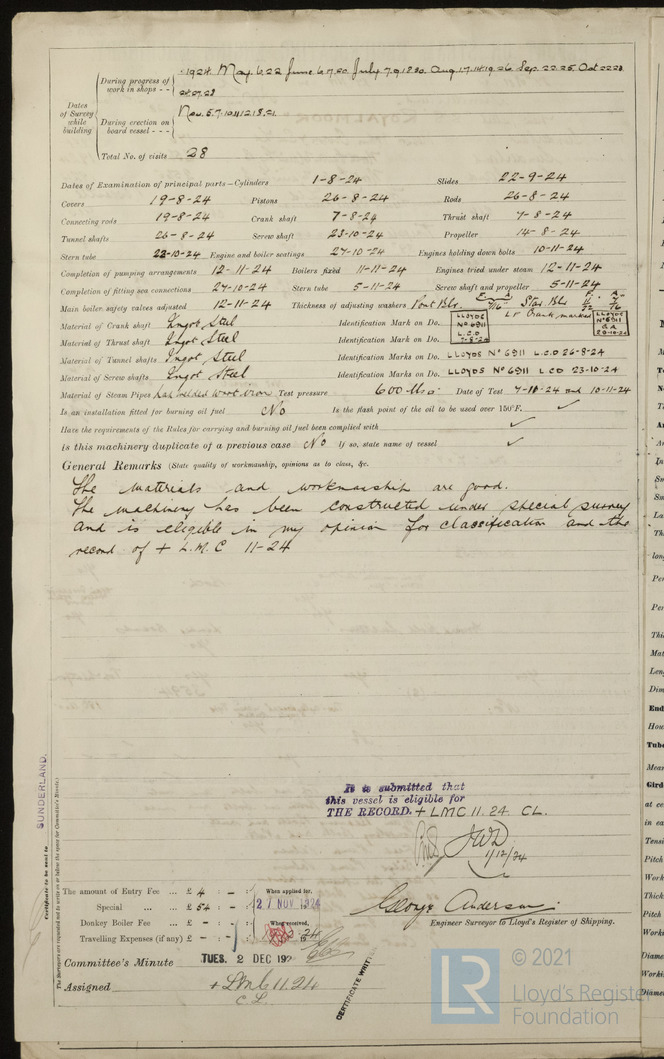 Dates of Survey while building
During progress of work in shops - - 1924. May. 6.22 June 6.17.20 July. 7.9.18.30. Aug. 1.7.14.19.26 Sep. 22.25 Oct 22.23.
24.27.28
During erection on board vessel - - - Nov. 5.7.10.11.12.18.21.
Total No. of visits 28
Dates of Examination of principal parts—Cylinders 1-8-24 Slides 22-9-24
Covers 19-8-24 Pistons 26-8-24 Rods 26-8-24
Connecting rods 19-8-24 Crank shaft 7-8-24 Thrust shaft 7-8-24
Tunnel shafts 26-8-24 Screw shaft 23-10-24 Propeller 14-8-24
Stern tube 22-10-24 Engine and boiler seatings 27-10-24 Engines holding down bolts 10-11-24
Completion of pumping arrangements 12-11-24 Boilers fixed 11-11-24 Engines tried under steam 12-11-24
Completion of fitting sea connections 27-10-24 Stern tube 5-11-24 Screw shaft and propeller 5-11-24
Main boiler safety valves adjusted 12-11-24 Thickness of adjusting washers Port Blr. Star Blr
Material of Crank shaft Ingot Steel Identification Mark on Do. LLOYDS No 6911 L.C.D 7-8-24 Lr Crank marked LLOYDS No 6911 20-10-24
Material of Thrust shaft Ingot Steel Identification Mark on Do.
Material of Tunnel shafts Ingot Steel Identification Marks on Do. LLOYDS No 6911 L.C.D 26-8-24
Material of Screw shafts Ingot Steel Identification Marks on Do. LLOYDS No 6911 L C D 23-10-24
Material of Steam Pipes Lap welded Wrot Iron Test pressure 600 lbs Date of Test 7-11-24 and 10-11-24
Is an installation fitted for burning oil fuel No Is the flash point of the oil to be used over 150°F. ✓
Have the requirements of the Rules for carrying and burning oil fuel been complied with ✓
Is this machinery duplicate of a previous case No If so, state name of vessel ✓
General Remarks (State quality of workmanship, opinions as to class, &c.
The materials and workmanship are good.
The machinery has been constructed under special survey
and is eligible in my opinion for classification and the
record of + L.M.C 11-24
It is submitted that
this vessel is eligible for
THE RECORD. + LMC 11.24 CL.
1/12/24
SUNDERLAND.
Certificate to be sent to
The amount of Entry Fee ... £ 4 : - :
When applied for,
Special ... £ 54 : - :
27 NOV 1924
Donkey Boiler Fee ... £ - :
When received,
Travelling Expenses (if any) £ - : - :
George Anderson.
Engineer Surveyor to Lloyd's Register of Shipping.
Committee's Minute TUES. 2 DEC 192
Assigned + LMC 11.24
C.L.
CERTIFICATE WRIT
LR
© 2021
Lloyd's Register
Foundation